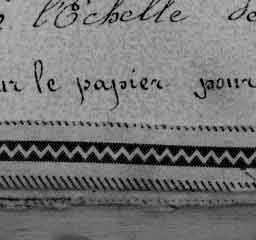 l'Echelle de
ur le papier pour